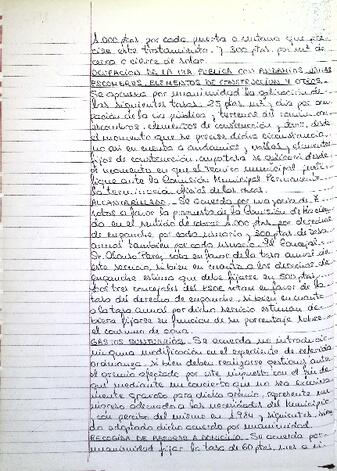 1.000 ptas. por cada puerta o ventana que
este tratamiento. y 300 ptas. por mt. de
cerca o cierre de solar.
OCUPACION DE LA VIA PUBLICA CON ANDAMIOS, VALLAS
ESCOMBROS, ELEMENTOS DE CONSTRUCCION Y OTROS.
Se aprueba por unanimidad la aplicación de
las siguientes tasas: 25 ptas. mt. y dias por ocu-
pación de la via pública y terrenos del común con
escombros, elementos de construcción y otros desde
el momento que se preste dicha circunstancia
no asi en cuanto a andamios, vallas y elementos
fijos de construcción, cuya tasa se aplicará desde
el momento en que el Tecnico municipal
que ante la Comisión Municipal Permanente
la terminación oficial de las obras.
ALCANTARILLADO. Se acuerda por mayoria de 7
votos a favor la propuesta de la Comisión de Hacien-
da en el sentido de cobrar 1.000 ptas. por derechos
de enganche por cada usuario y 300 ptas. de tasa
anual tambien por cada usuario. El Concejal
Sr. Olasso Perez vota en favor de la tasa anual de
este servicio, si bien en cuanto a los derechos de
enganche estima que debe fijarse en 500 ptas.
Los tres concejales del PSOE votan en favor de la
tasa del derecho de enganche, si bien en cuanto
a la tasa anual por dicho servicio estiman de-
biera fijarse en función de un porcentaje sobre
el consumo de agua.
GASTOS SUNTUARIOS. Se acuerda no introducir
ninguna modificación en el expediente de referida
ordenanza, si bien deben realizarse gestiones ante
el gremio afectado por este impuesto con el fin de
que mediante un concierto que no sea excesiva-
mente gravoso para dicho gremio, represente un
ingreso adecuado a las necesidades del Municipio
con percibo del mismo en 1984 y siguientes, sien-
do adoptado dicho acuerdo por unanimidad.
RECOGIDA DE BASURAS A DOMICILIO. Se acuerda por
unanimidad fijar la tasa de 60 ptas. mes a